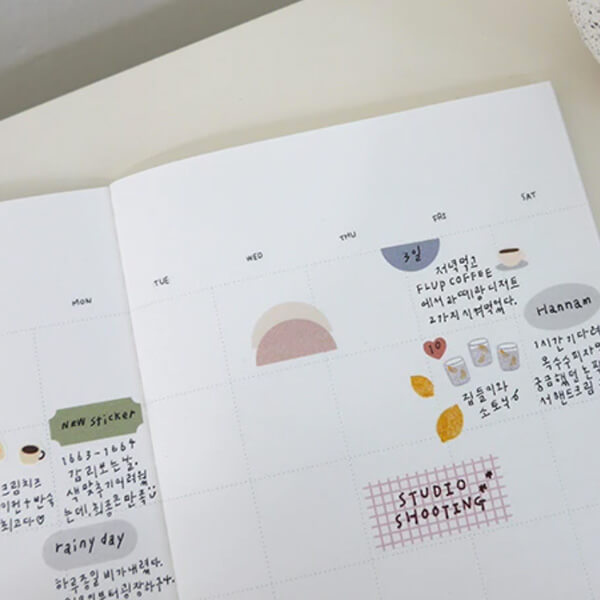 MON
TUE
WED
THU
FRI
SAT
3일
저녁먹고
FLUP COFFEE
에서 라떼랑 디저트
2가지 시켜먹었다.
Hannam
1시간 기다려
옥수수피자먹
궁금했던 논픽
서 핸드크림
10
집들이와
소토식
NEW sticker
1663-1664
감리보는날.
색 맞추기 어려웠
는데, 최종은 만족
크림치즈
+ 반숙
최고다♡
rainy day
하루종일 비가 내렸다.
STUDIO
SHOOTING